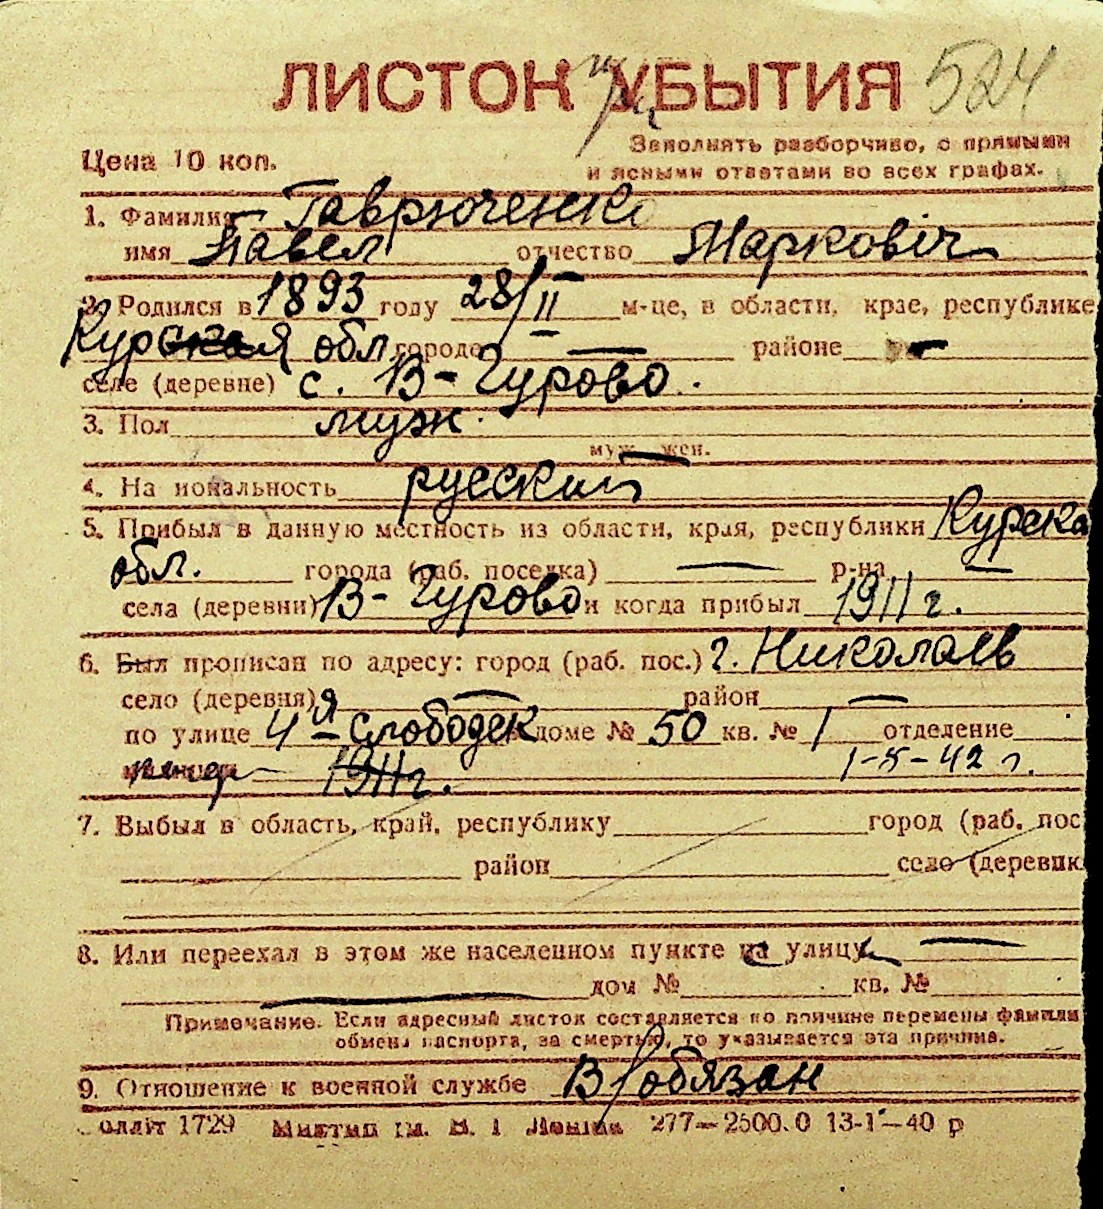 ЛИСТОК УБЫТИЯ 524
Цена 10 коп.
Заполнять разборчиво, с прямыми
и ясными ответами во всех графах.
1. Фамилия Гаврюченко
имя Павел отчество Марковіч
2. Родился в 1893 году 28/II м-це, в области, крае, республике
Курская обл. городе — районе —
селе (деревне) с. В-Гурово.
3. Пол муж.
муж. жен.
4. Национальность русский
5. Прибыл в данную местность из области, края, республики Курска
обл. города (раб. поселка) — р-на —
села (деревни) В-Гурово и когда прибыл 1911 г.
6. Был прописан по адресу: город (раб. пос.) г. Николаев
село (деревня) — район —
по улице 4ая Слободск доме № 50 кв. № 1 отделение
1911 г. 1-5-42 г.
7. Выбыл в область, край, республику город (раб. пос
район село (деревня
8. Или переехал в этом же населенном пункте на улицу —
дом № кв. №
Примечание. Если адресный листок составляется по причине перемены фамилии
обмена паспорта, за смертью, то указывается эта причина.
9. Отношение к военной службе В/обязан
1729 277—2500.0 13-1—40 р